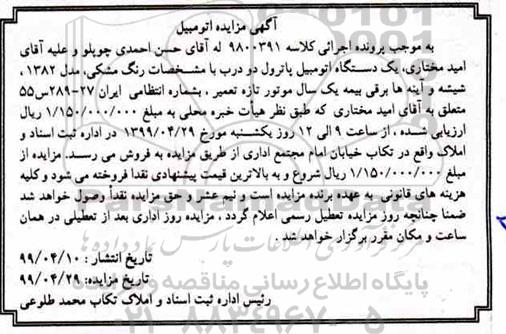 آگهی مزایده اتومبیل
به موجب پرونده اجرائی کلاسه ۹۸۰۰۳۹۱ له آقای حسن احمدی چوپلو و علیه آقای
امید مختاری، یک دستگاه اتومبیل پاترول دو درب با مشخصات رنگ مشکی، مدل ۱۳۸۲ ،
شیشه و آینه ها برقی بیمه یک سال موتور تازه تعمیر ، بشماره انتظامی ایران ۲۷-۲۸۹س۵۵
متعلق به آقای امید مختاری که طبق نظر هیأت خبره محلی به مبلغ ۱/۱۵۰/۰۰۰/۰۰۰ ریال
ارزیابی شده ، از ساعت ۹ الی ۱۲ روز یکشنبه مورخ ۱۳۹۹/۰۴/۲۹ در اداره ثبت اسناد و
املاک واقع در تکاب خیابان امام مجتمع اداری از طریق مزایده به فروش می رسد. مزایده از
مبلغ ۱/۱۵۰/۰۰۰/۰۰۰ ریال شروع و به بالاترین قیمت پیشنهادی نقدا فروخته می شود و کلیه
هزینه های قانونی به عهده برنده مزایده است و نیم عشر و حق مزایده نقداً وصول خواهد شد
ضمنا چنانچه روز مزایده تعطیل رسمی اعلام گردد ، مزایده روز اداری بعد از تعطیلی در همان
ساعت و مکان مقرر برگزار خواهد شد .
تاریخ انتشار : ۹۹/۰۴/۱۰
تاریخ مزایده: ۹۹/۰۴/۲۹
رئیس اداره ثبت اسناد و املاک تکاب محمد طلوعی
پایگاه اطلاع رسانی مناقصه و مزایده
۰۲۱-۸۸۳۴۹۶۷۰-۵